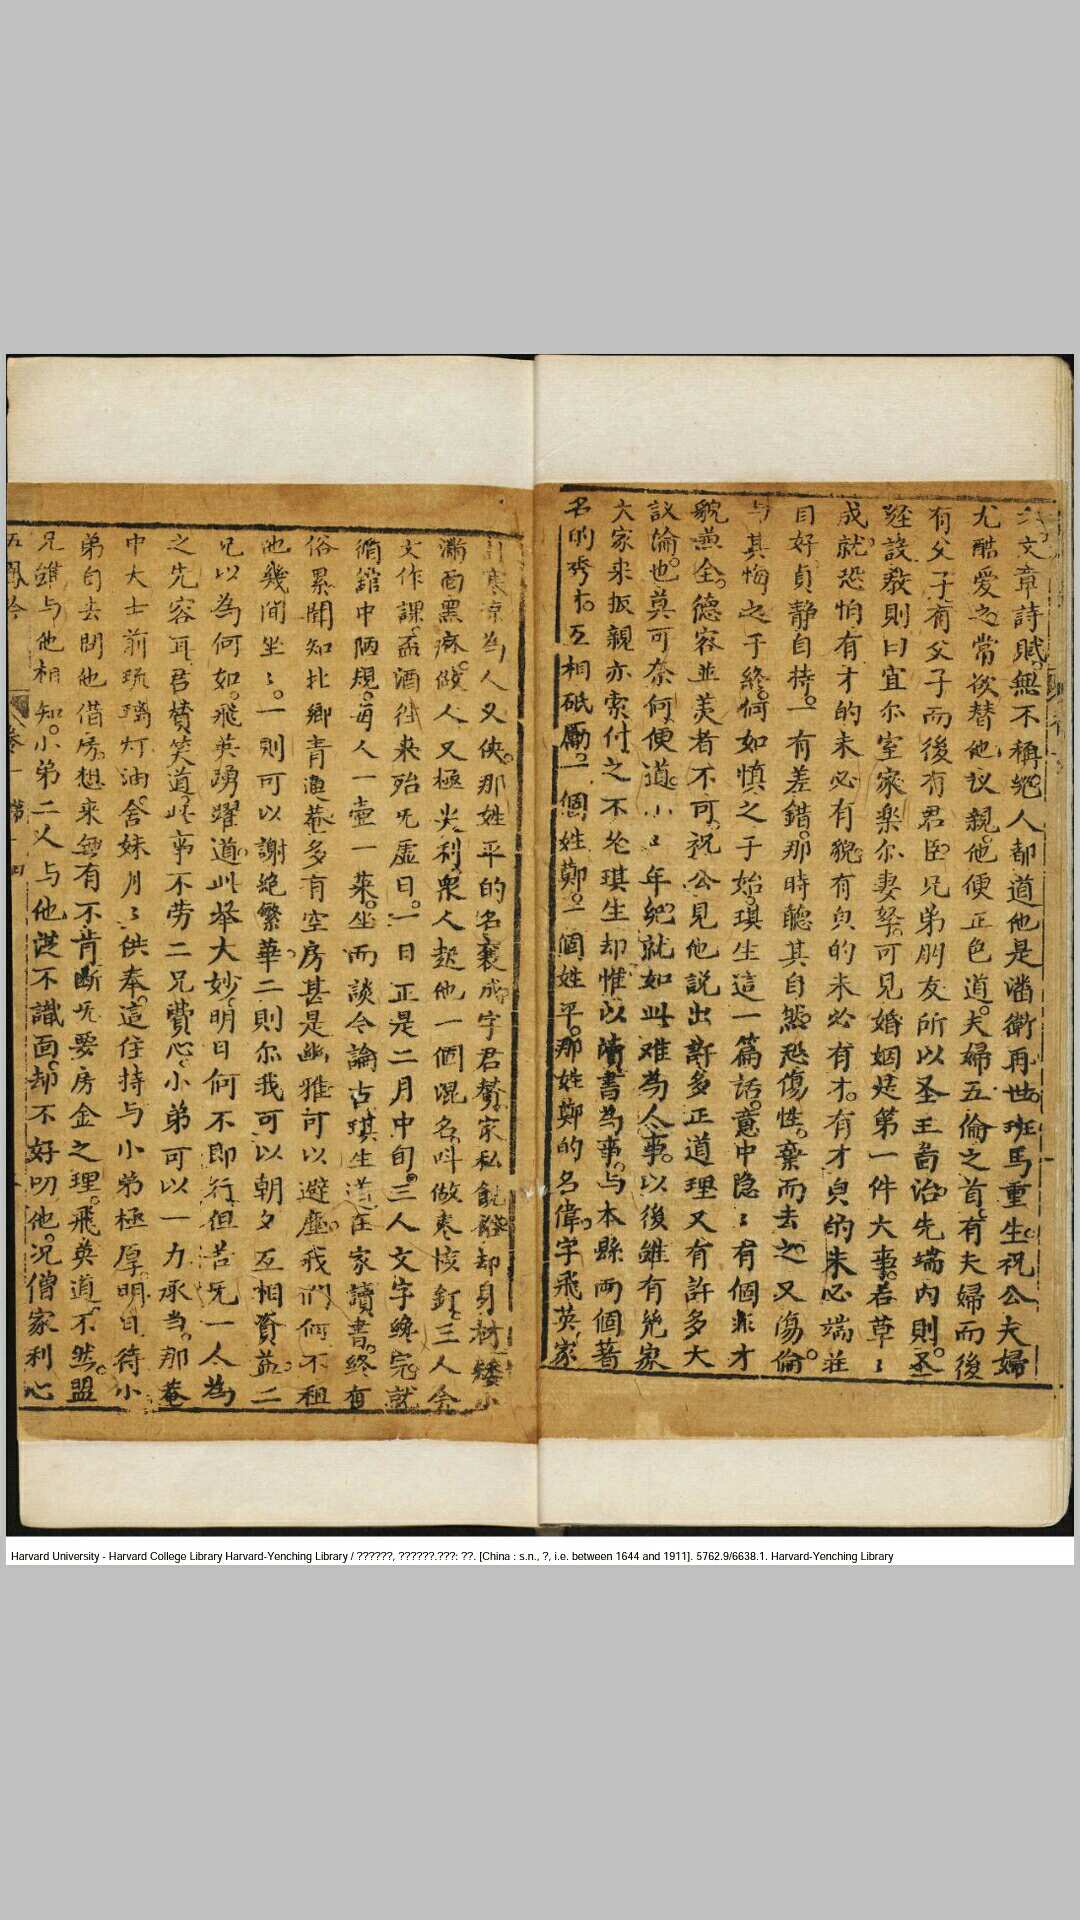 文章詩賦。無不稱絕。人都道他是潘衛再世。班馬重生。祝公夫婦
尤酷愛之。常欲替他議親。他便正色道。夫婦五倫之首。有夫婦而後
有父子。有父子而後有君臣。兄弟朋友。所以圣王畜治。先端内則。圣
經設教。則曰宜尔室家。楽尔妻孥。可見婚姻是第一件大事。若草〻
成就。恐怕有才的未必有貌。有貞的未必有才。有才貞的未必端莊
目好。貞靜自持。一有差錯。那時聽其自然。恐傷性。棄而去之。又傷倫。
与其悔之于終。何如慎之于始。琪生這一篇話。意中隐〻有個非才
貌兼全。德容並美者不可。祝公見他説出許多正道理。又有許多大
議論。也莫可奈何。便道。小〻年紀。就如此难為人事。以後雖有幾家
大家来扳親。亦索付之不论。琪生却惟以讀書為事。与本縣两個著
名的秀才。互相砥勵。一個姓鄭。一個姓平。那姓鄭的名偉。字飛英。家
寒凉。為人又俠。那姓平的名襄成。字君賛。家私饒裕。却身材矮小
滿面黑麻。做人又極尖利。衆人起他一個混名。叫做枣核釘。三人会
文作課。盃酒往来。殆无虚日。一日正是二月中旬。三人文字纔完。就
循館中陋規。每人一壺一菜。坐而談今論古。琪生道。在家讀書。終有
俗累。聞知北鄉青蓮菴多有空房。甚是幽雅。可以避塵。我們何不租
他幾間坐〻。一則可以謝絶繁華。二則尔我可以朝夕互相資益。二
兄以為何如。飛英踴躍道。此举大妙。明日何不即行。但苦无一人為
之先容耳。君賛笑道。此事不劳二兄費心。小弟可以一力承当。那菴
中大士前琉璃灯油。舍妹月〻供奉。這住持与小弟極厚。明日待小
弟自去問他借房。想来無有不肯。断无要房金之理。飛英道。不然。盟
兄雖与他相知。小弟二人与他从不識面。却不好叨他。况僧家利心
五鳳吟 卷一 第一回